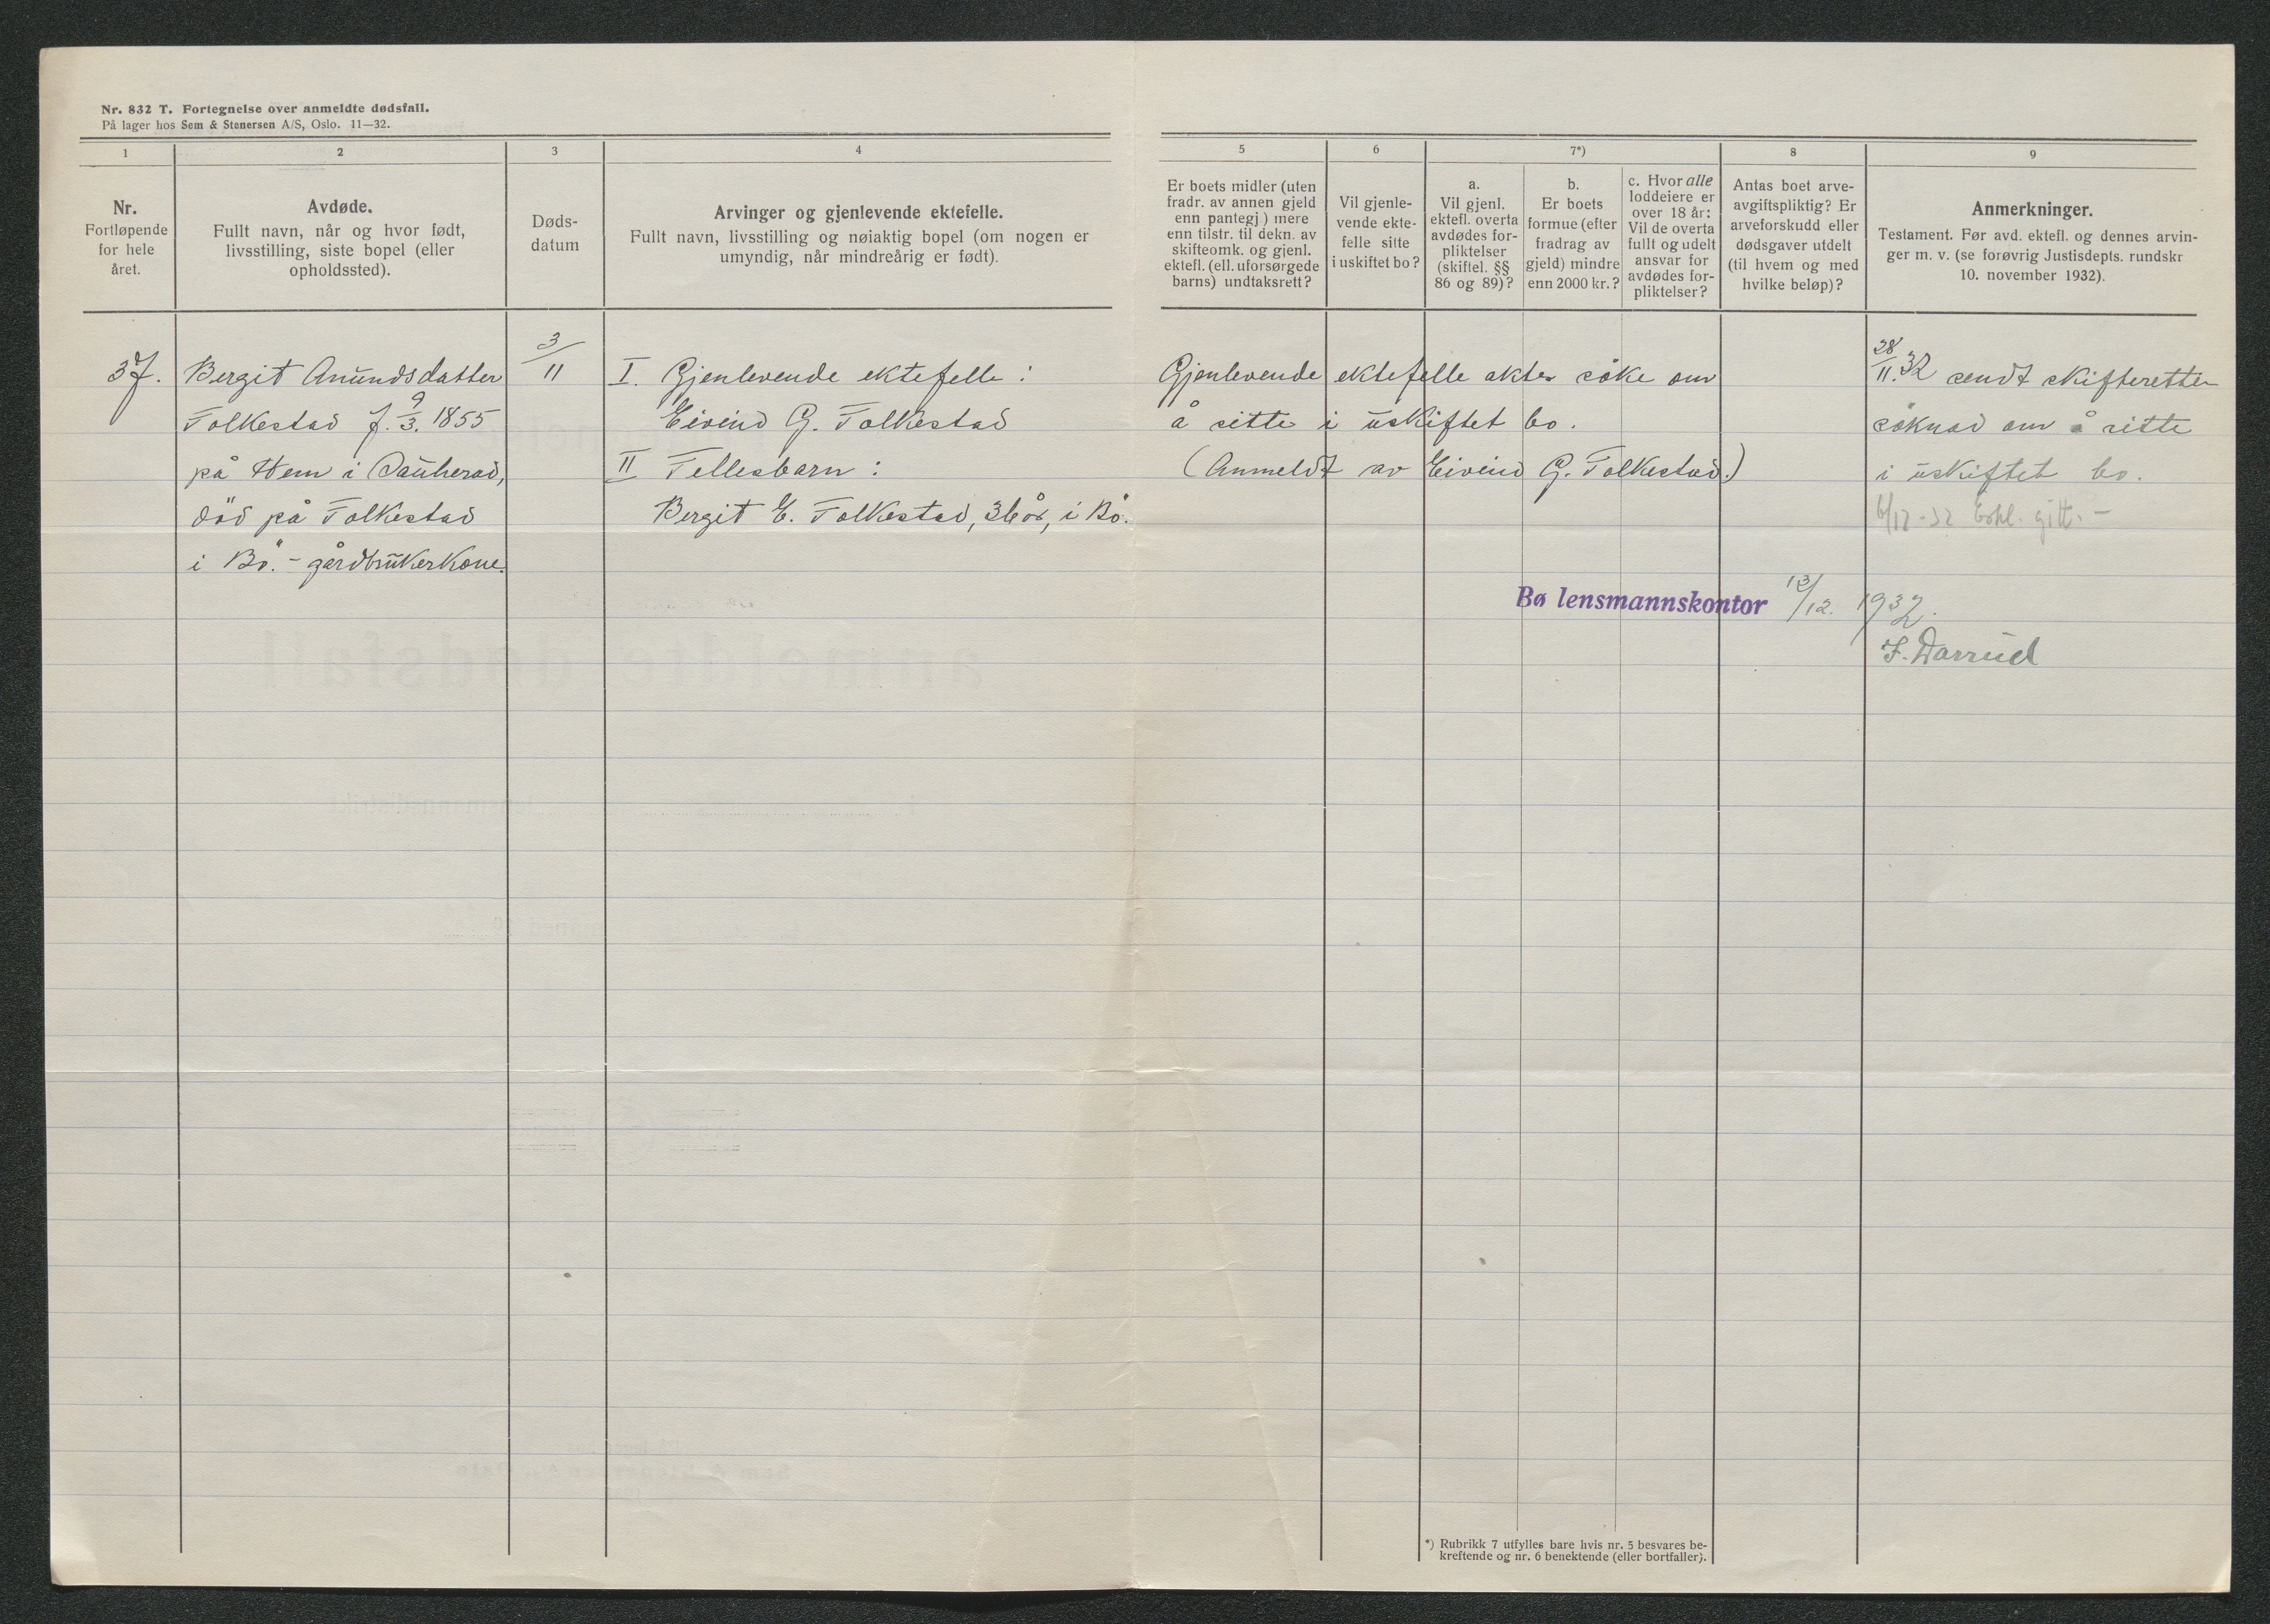 Nr. 832 T. Fortegnelse over anmeldte dødsfall.
På lager hos Sem & Stenersen A/S, Oslo. 11—32.
1
2
3
4
5
6
7*)
8
9
Nr.
Fortløpende
for hele
året.
Avdøde.
Fullt navn, når og hvor født,
livsstilling, siste bopel (eller
opholdssted).
Døds-
datum
Arvinger og gjenlevende ektefelle.
Fullt navn, livsstilling og nøiaktig bopel (om nogen er
umyndig, når mindreårig er født).
Er boets midler (uten
fradr. av annen gjeld
enn pantegj.) mere
enn tilstr. til dekn. av
skifteomk. og gjenl.
ektefl. (ell. uforsørgede
barns) undtaksrett?
Vil gjenle-
vende ekte-
felle sitte
i uskiftet bo?
a.
Vil gjenl.
ektefl. overta
avdødes for-
pliktelser
(skiftel. §§
86 og 89)?
b.
Er boets
formue (efter
fradrag av
gjeld) mindre
enn 2000 kr.?
c. Hvor alle
loddeiere er
over 18 år:
Vil de overta
fullt og udelt
ansvar for
avdødes for-
pliktelser?
Antas boet arve-
avgiftspliktig? Er
arveforskudd eller
dødsgaver utdelt
(til hvem og med
hvilke beløp)?
Anmerkninger.
Testament. Før avd. ektefl. og dennes arvin-
ger m. v. (se forøvrig Justisdepts. rundskr
10. november 1932).
37.
Bergit Anundsdatter
Folkestad f. 9/3. 1855
på Hem i Sauherad,
död på Folkestad
i Bö. - gårdbrukerkone.
3/11
I. Gjenlevende ektefelle:
Eivind G. Folkestad
II Fellesbarn:
Bergit E. Folkestad, 36 år, i Bö.
Gjenlevende ektefelle akter söke om
å sitte i uskiftet bo.
(Anmeldt av Eivind G. Folkestad.)
28/11.32 sendt skifteretten
söknad om å sitte
i uskiftet bo.
6/12-32 gitt. -
Bø lensmannskontor 13/12. 1932.
F. Darrud
*) Rubrikk 7 utfylles bare hvis nr. 5 besvares be-
kreftende og nr. 6 benektende (eller bortfaller).